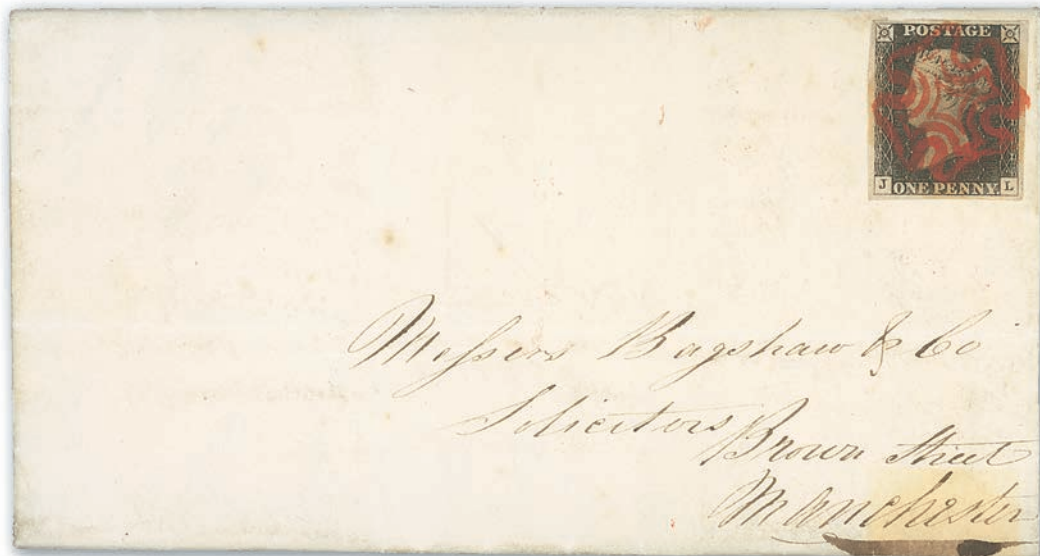 POSTAGE
J ONE PENNY. L
Messers Bagshaw & Co
Solicitors
Brown Street
Manchester